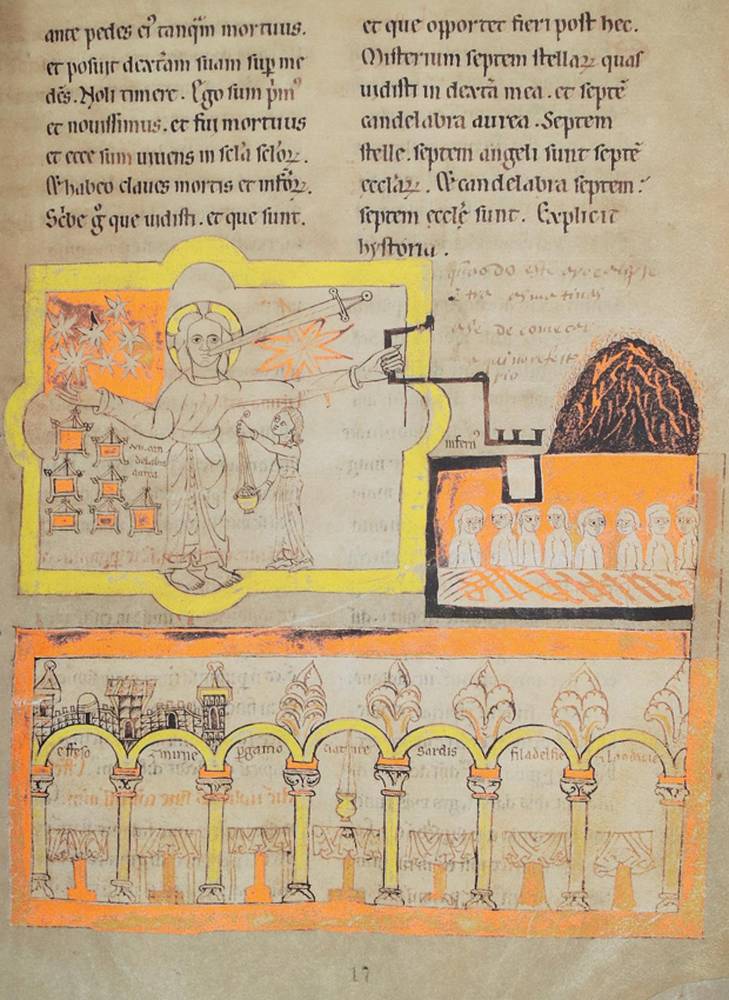 ante pedes ei᾽ tanq̃m mortuus.
et posuit dextam suam sup̱ me
dc̃s. Noli timere. Ego sum p̃m᾽
et nouissimus. et fui mortuus
et ecce sum uiuens in scl̃a scl̃oꝝ.
Et habeo claues mortis et infr̃oꝝ.
Sc̃be g̊ que uidisti. et que sunt.
et que oportet fieri post hec.
Misterium septem stellaꝝ quas
uidisti in dextã mea. et septẽ
candelabra aurea. Septem
stelle. septem angeli sunt septẽ
eccl̃aꝝ. Et candelabra septem:
septem eccl̃e sunt. Explicit
hystoria.
candelabra
aurea
infern᾽
effeso
zmirne
p̱gamo
tiatire
sardis
filadelfie
Laodicie
17